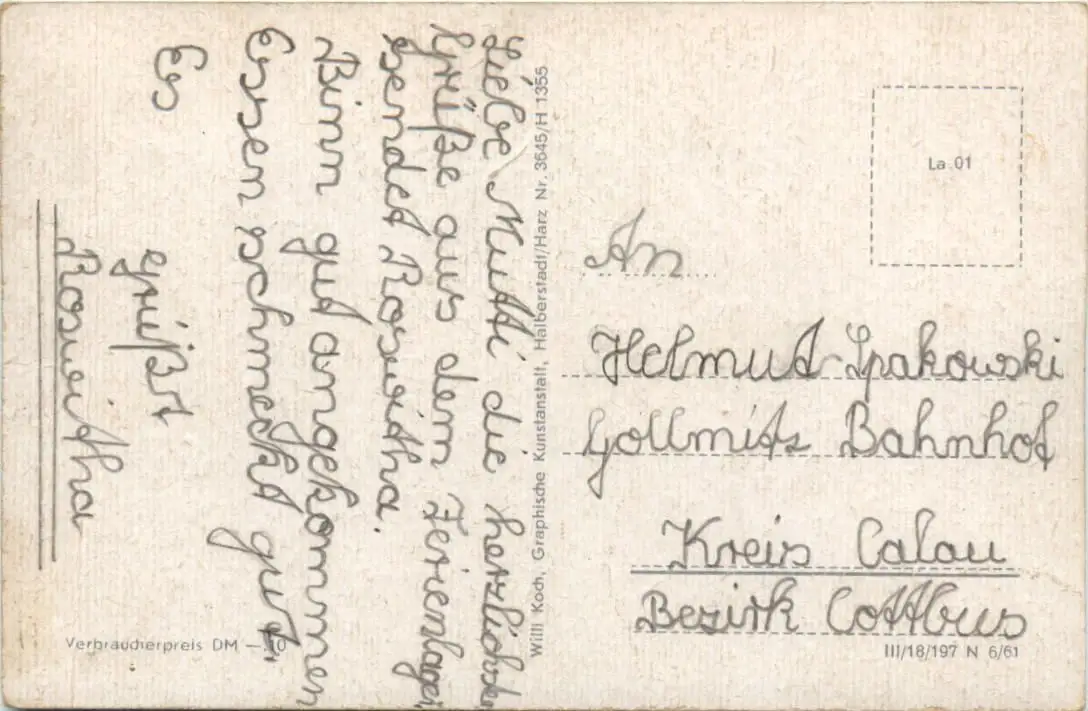 Liebe Mutti die herzlichste
Grüße aus dem Ferienlager
sendet Roswitha.
Binn gut angekommen
Essen schmeckt gut.
Es
grüßt
Roswitha
Willi Koch, Graphische Kunstanstalt, Halberstadt/Harz Nr. 3645/H 1355
La 01
An
Helmut Spakowski
Gollmitz Bahnhof
Kreis Calau
Bezirk Cottbus
Verbraucherpreis DM —.10
III/18/197 N 6/61